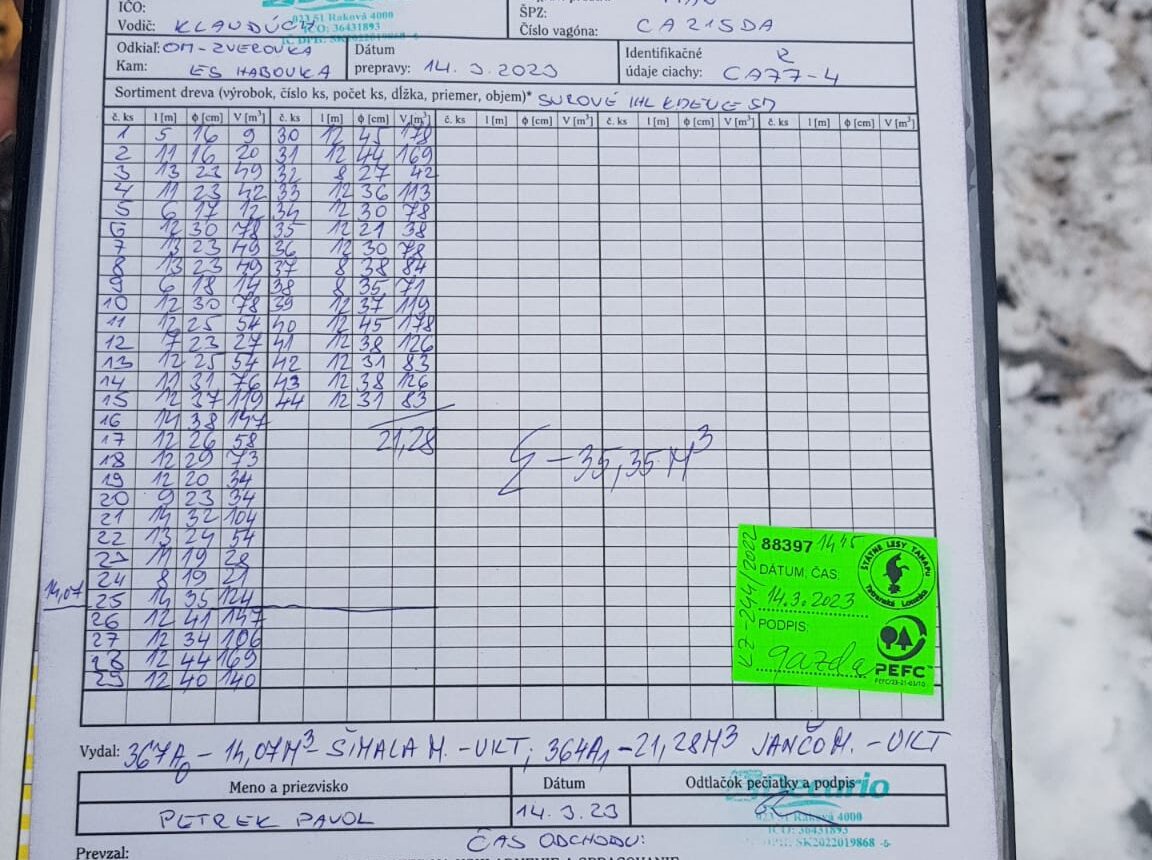 IČO:
023 51 Raková 4000
IČO: 36431893
ŠPZ:
Vodič: KLAUDÚCH
Číslo vagóna: CA215DA
Odkiaľ: OM-ZVEROVKA
Dátum
Identifikačné
Kam: ES HABOVKA
prepravy: 14.3.2023
údaje ciachy: CA77-4
Sortiment dreva (výrobok, číslo ks, počet ks, dĺžka, priemer, objem)* SUROVÉ IHL
č. ks l [m] ϕ [cm] V [m³] č. ks l [m] ϕ [cm] V [m³] č. ks l [m] ϕ [cm] V [m³] č. ks l [m] ϕ [cm] V [m³] č. ks l [m] ϕ [cm] V [m³]
1 5 16 9 30 12 45 178
2 11 16 20 31 12 44 169
3 13 23 49 32 8 27 42
4 11 23 42 33 12 36 113
5 6 17 12 34 12 30 78
6 12 30 78 35 12 21 38
7 13 23 49 36 12 30 78
8 13 23 49 37 8 38 84
9 6 18 14 38 8 35 71
10 12 30 78 39 12 37 119
11 12 25 54 40 12 45 178
12 7 23 27 41 12 38 126
13 12 25 54 42 12 31 83
14 11 31 76 43 12 38 126
15 12 37 119 44 12 31 83
16 14 38 147
17 12 26 58 21,28
18 12 29 73 Σ - 35,35 M³
19 12 20 34
20 9 23 34
21 14 32 104
22 13 24 54
23 11 19 28
24 8 19 21
14,07 25 14 35 124
26 12 41 147
27 12 34 106
28 12 44 169
29 12 40 140
88397 14 45
DÁTUM, ČAS:
14.3.2023
PODPIS:
gazda
KZ-244/2022
ŠTÁTNE LESY TANAPU
Tatranská Lomnica
PEFC
Vydal: 367A0 - 14,07M³ - ŠIMALA M. - UKT; 364A1 - 21,28M³ JANČO M. - UKT
Meno a priezvisko Dátum Odtlačok pečiatky a podpis
PETREK PAVOL 14.3.23
023 51 Raková 4000
IČO: 36431893
SK2022019868
ČAS ODCHODU:
Prevzal: